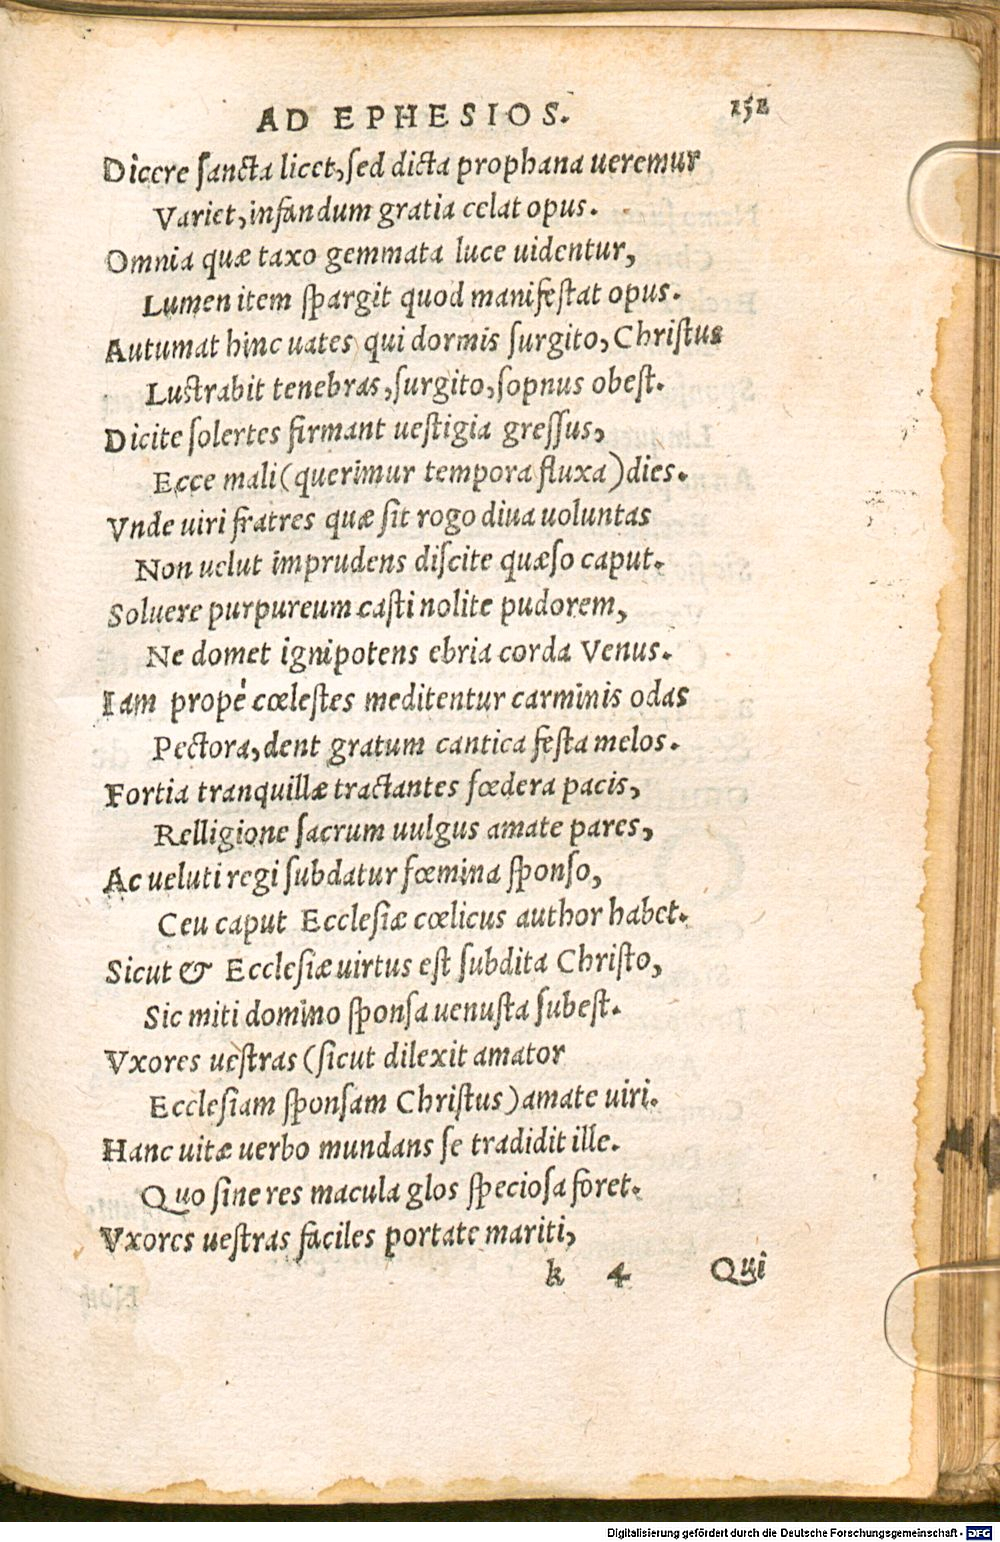 AD EPHESIOS. 152
Dicere sancta licet, sed dicta prophana ueremur
Variet, infandum gratia celat opus.
Omnia quæ taxo gemmata luce uidentur,
Lumen item spargit quod manifestat opus.
Autumat hinc uates qui dormis surgito, Christus
Lustrabit tenebras, surgito, sopnus obest.
Dicite solertes firmant uestigia gressus,
Ecce mali (querimur tempora fluxa) dies.
Vnde uiri fratres quæ sit rogo diua uoluntas
Non uelut imprudens discite quæso caput.
Soluere purpureum casti nolite pudorem,
Ne domet ignipotens ebria corda Venus.
Iam propè cœlestes meditentur carminis odas
Pectora, dent gratum cantica festa melos.
Fortia tranquillæ tractantes fœdera pacis,
Relligione sacrum uulgus amate pares,
Ac ueluti regi subdatur fœmina sponso,
Ceu caput Ecclesiæ cœlicus author habet.
Sicut & Ecclesiæ uirtus est subdita Christo,
Sic miti domino sponsa uenusta subest.
Vxores uestras (sicut dilexit amator
Ecclesiam sponsam Christus) amate uiri.
Hanc uitæ uerbo mundans se tradidit ille.
Quo sine res macula glos speciosa foret.
Vxores uestras faciles portate mariti,
k 4 Qui
Digitalisierung gefördert durch die Deutsche Forschungsgemeinschaft - DFG